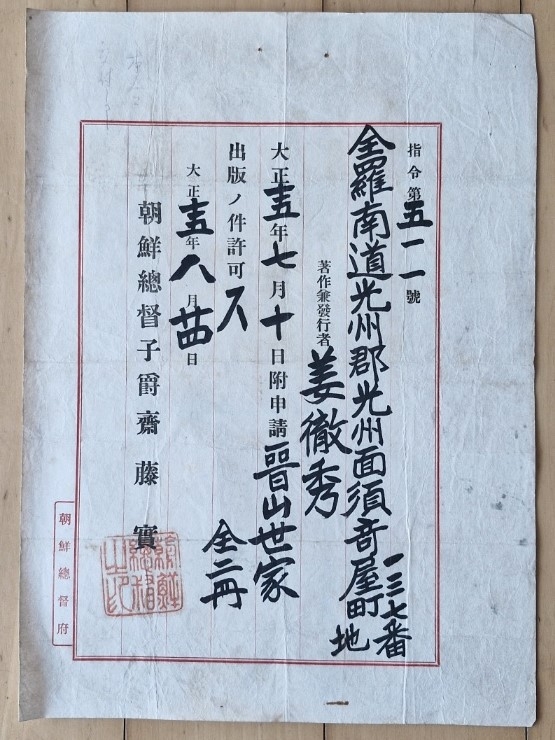 指令第五一一號
全羅南道光州郡光州面須奇屋町一三七番地
著作兼發行者 姜徹秀
大正十五年七月十日附申請 晉山世家 全二冊
出版ノ件許可ス
大正十五年八月廿四日
朝鮮總督子爵齋藤實
朝鮮總督之印
朝鮮總督府